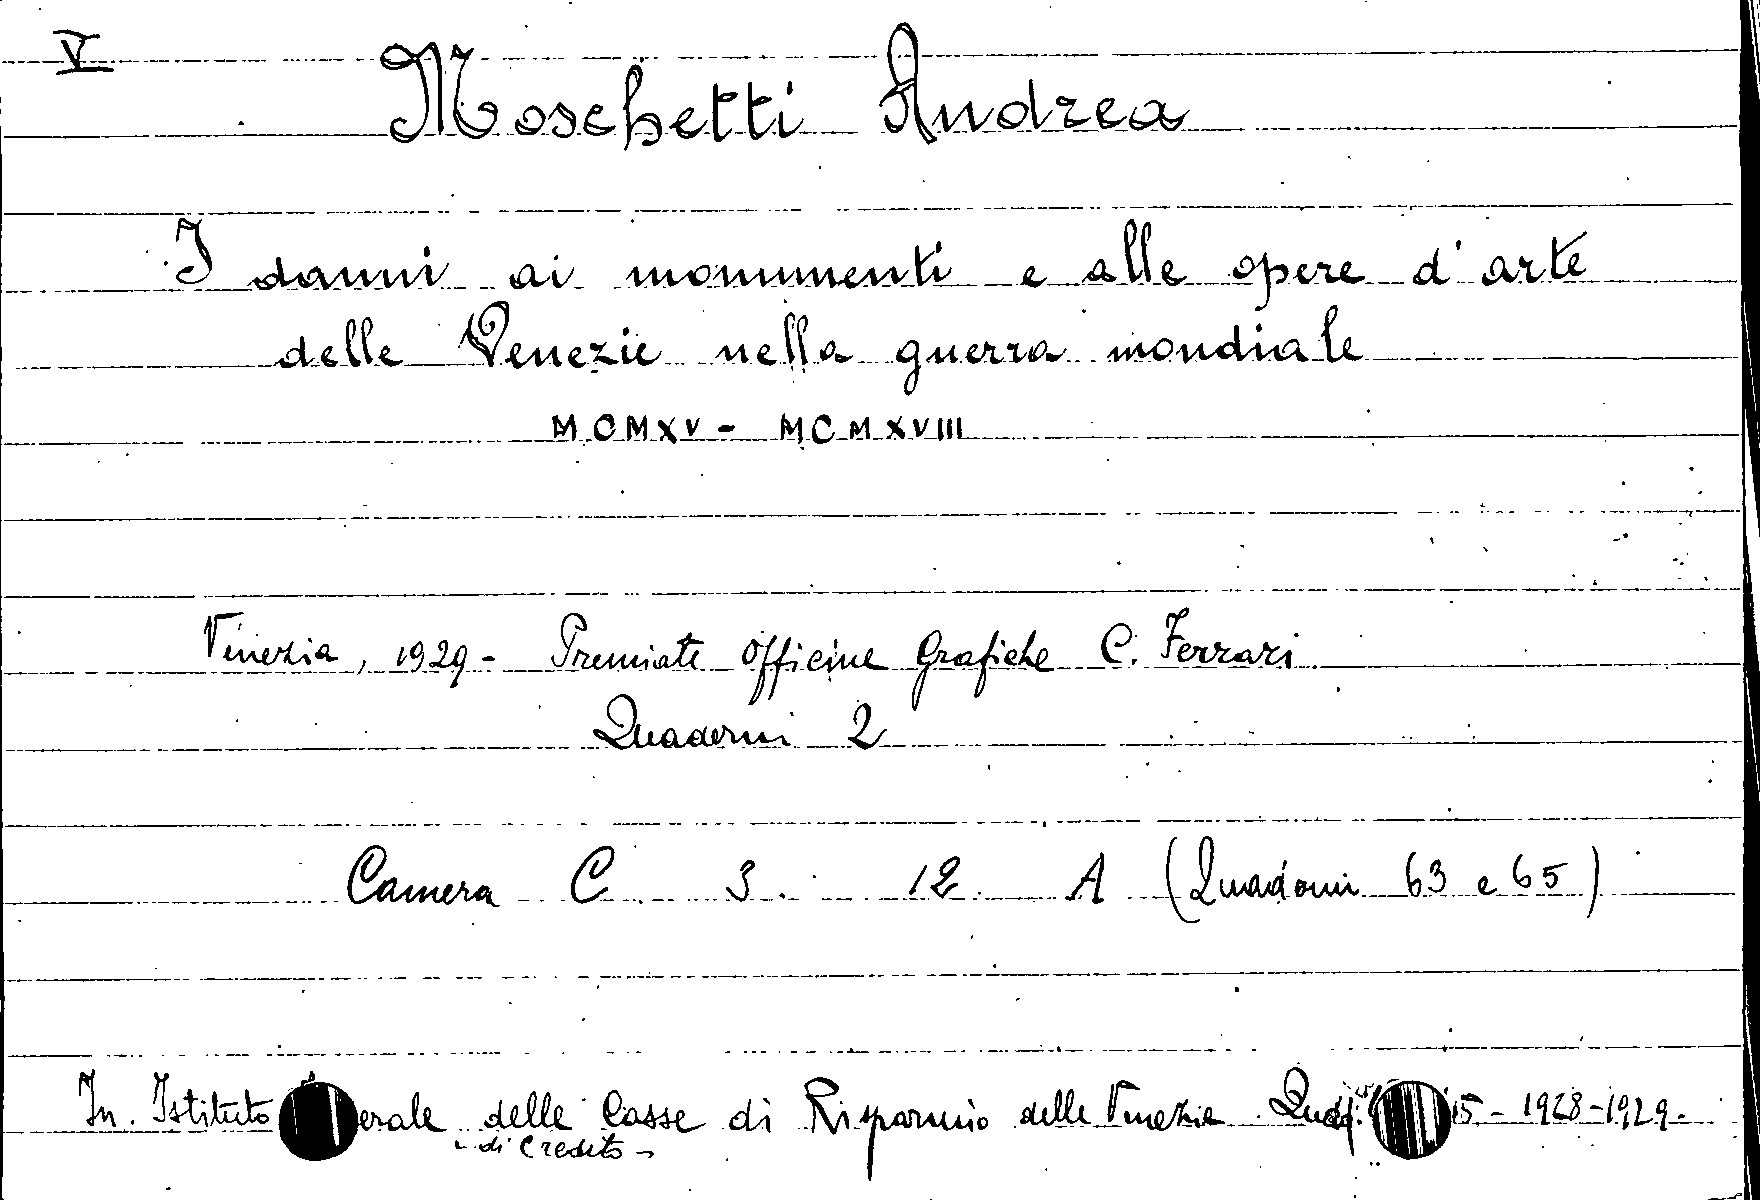 V
Moschetti Andrea
I danni ai monumenti e alle opere d'arte
delle Venezie nella guerra mondiale
MCMXV - MCMXVIII
Venezia, 1929 - Premiate Officine Grafiche C. Ferrari
Quaderni 2
Camera C. 3. 12. A (Quaderni 63 e 65)
In. Istituto erale delle Casse di Risparmio delle Venezie. 15 - 1928-1929.
- di Credito -